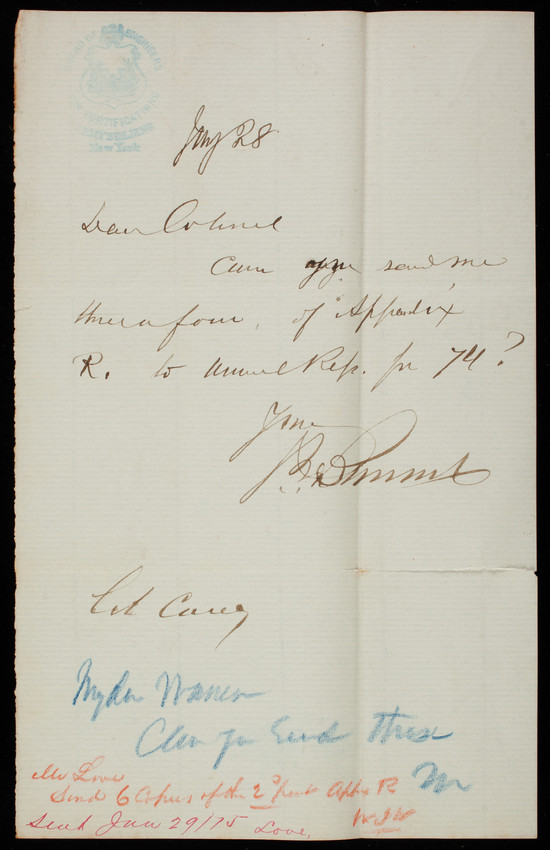 BOARD OF ENGINEERS
FORTIFICATIONS
New York
Jany 28
Dear Colonel
Can you send me
three or four, of "Appendix
R. to Annual Rep. for 74?
Yours
Col Casey
Can you send these
Mr Love
Send 6 Copies of the 2d part Appx R
Sent Jan 29/75 Love.